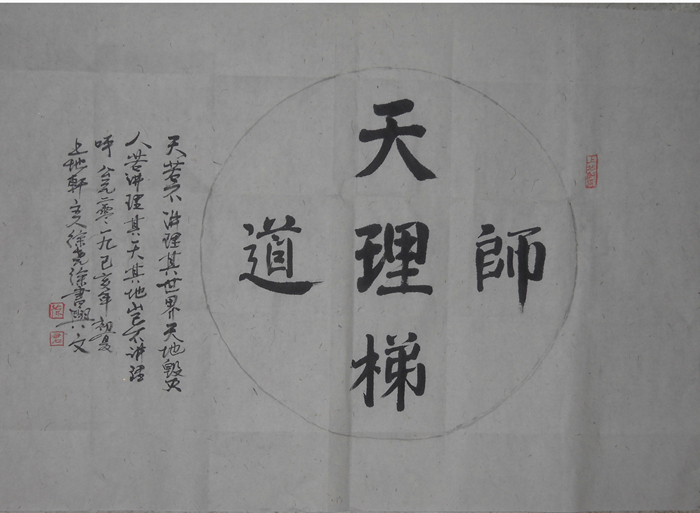 天
師理道
梯
天若不讲理其世界天地毀灭
人若讲理其天其地岂不讲理
呼 公元二零一九己亥年初夏
上地軒主人徐尧徐書興文